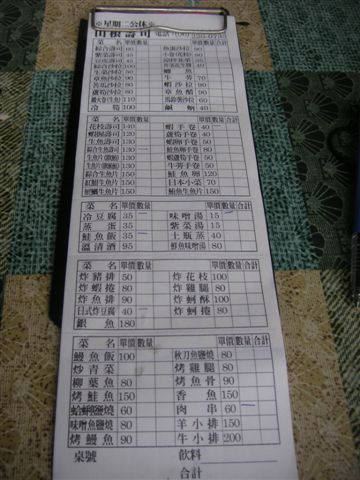 ※星期二公休※
田根壽司 電話:(06)
菜名 單價 數量 單價 數量 合計
綜合壽司 60
紫菜壽司
豆皮壽司
生菜沙拉 50
章魚沙拉 90
蘆筍沙拉 80 蝦沙拉 90
章魚醋 90
龍大卷(生魚) 110
冷筍 100
菜名 單價 數量 單價 數量 合計
花枝壽司 140 蝦手卷 40
蝦握壽司 120 蘆筍手卷 40
生魚壽司 130 蝦卵手卷 50
綜合生魚壽司 130 鮭魚卵手卷 80
130 蝦蘆筍手卷 50
130 牛蒡手卷 50
綜合生魚片 150 鮭魚卵 120
紅魽生魚片 150 日本小菜 70
旭蟹生魚片 150 鮪魚生魚片 150
菜名 單價 數量 單價 數量 合計
冷豆腐 35 味噌湯 15
蒸蛋 35 紫菜湯 15
鮭魚飯 35 土瓶蒸 40
溫清酒 95 鮮魚味噌湯 80
菜名 單價 數量 單價 數量 合計
炸豬排 50 炸花枝 100
炸蝦捲 80 炸雞腿 80
炸魚排 90 炸蚵酥 100
日式炸豆腐 40 炸蚵捲 80
銀魚 180
菜名 單價 數量 單價 數量 合計
鰻魚飯 100 秋刀魚鹽燒 80
炒青菜 烤雞腿 80
柳葉魚 80 烤魚骨 90
烤鮭魚 150 香魚 150
蛤蜊鹽燒 60 肉串 60
味噌魚鹽燒 60 羊小排 150
烤鰻魚 90 牛小排 200
桌號 飲料
合計